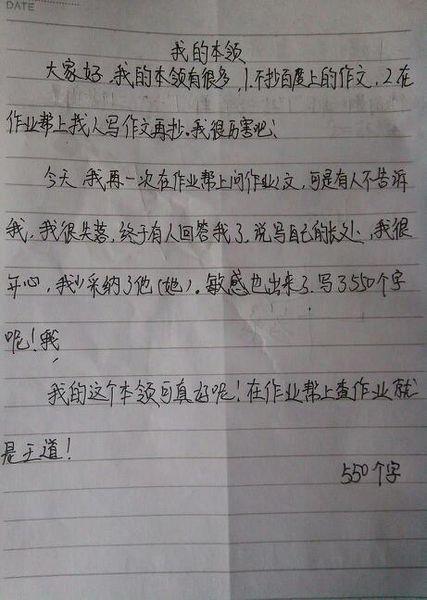 DATE
我的本领
大家好,我的本领有很多,1.不抄百度上的作文,2.在
作业帮上找人写作文再抄。我很厉害吧!
今天,我再一次在作业帮上问作业文,可是有人不告诉
我,我很失落,终于有人回答我了,说写自己的长处,我很
开心,我采纳了他(她)。敏感也出来了,写了550个字
呢!我
我的这个本领可真好呢!在作业帮上查作业就
是王道!
550个字